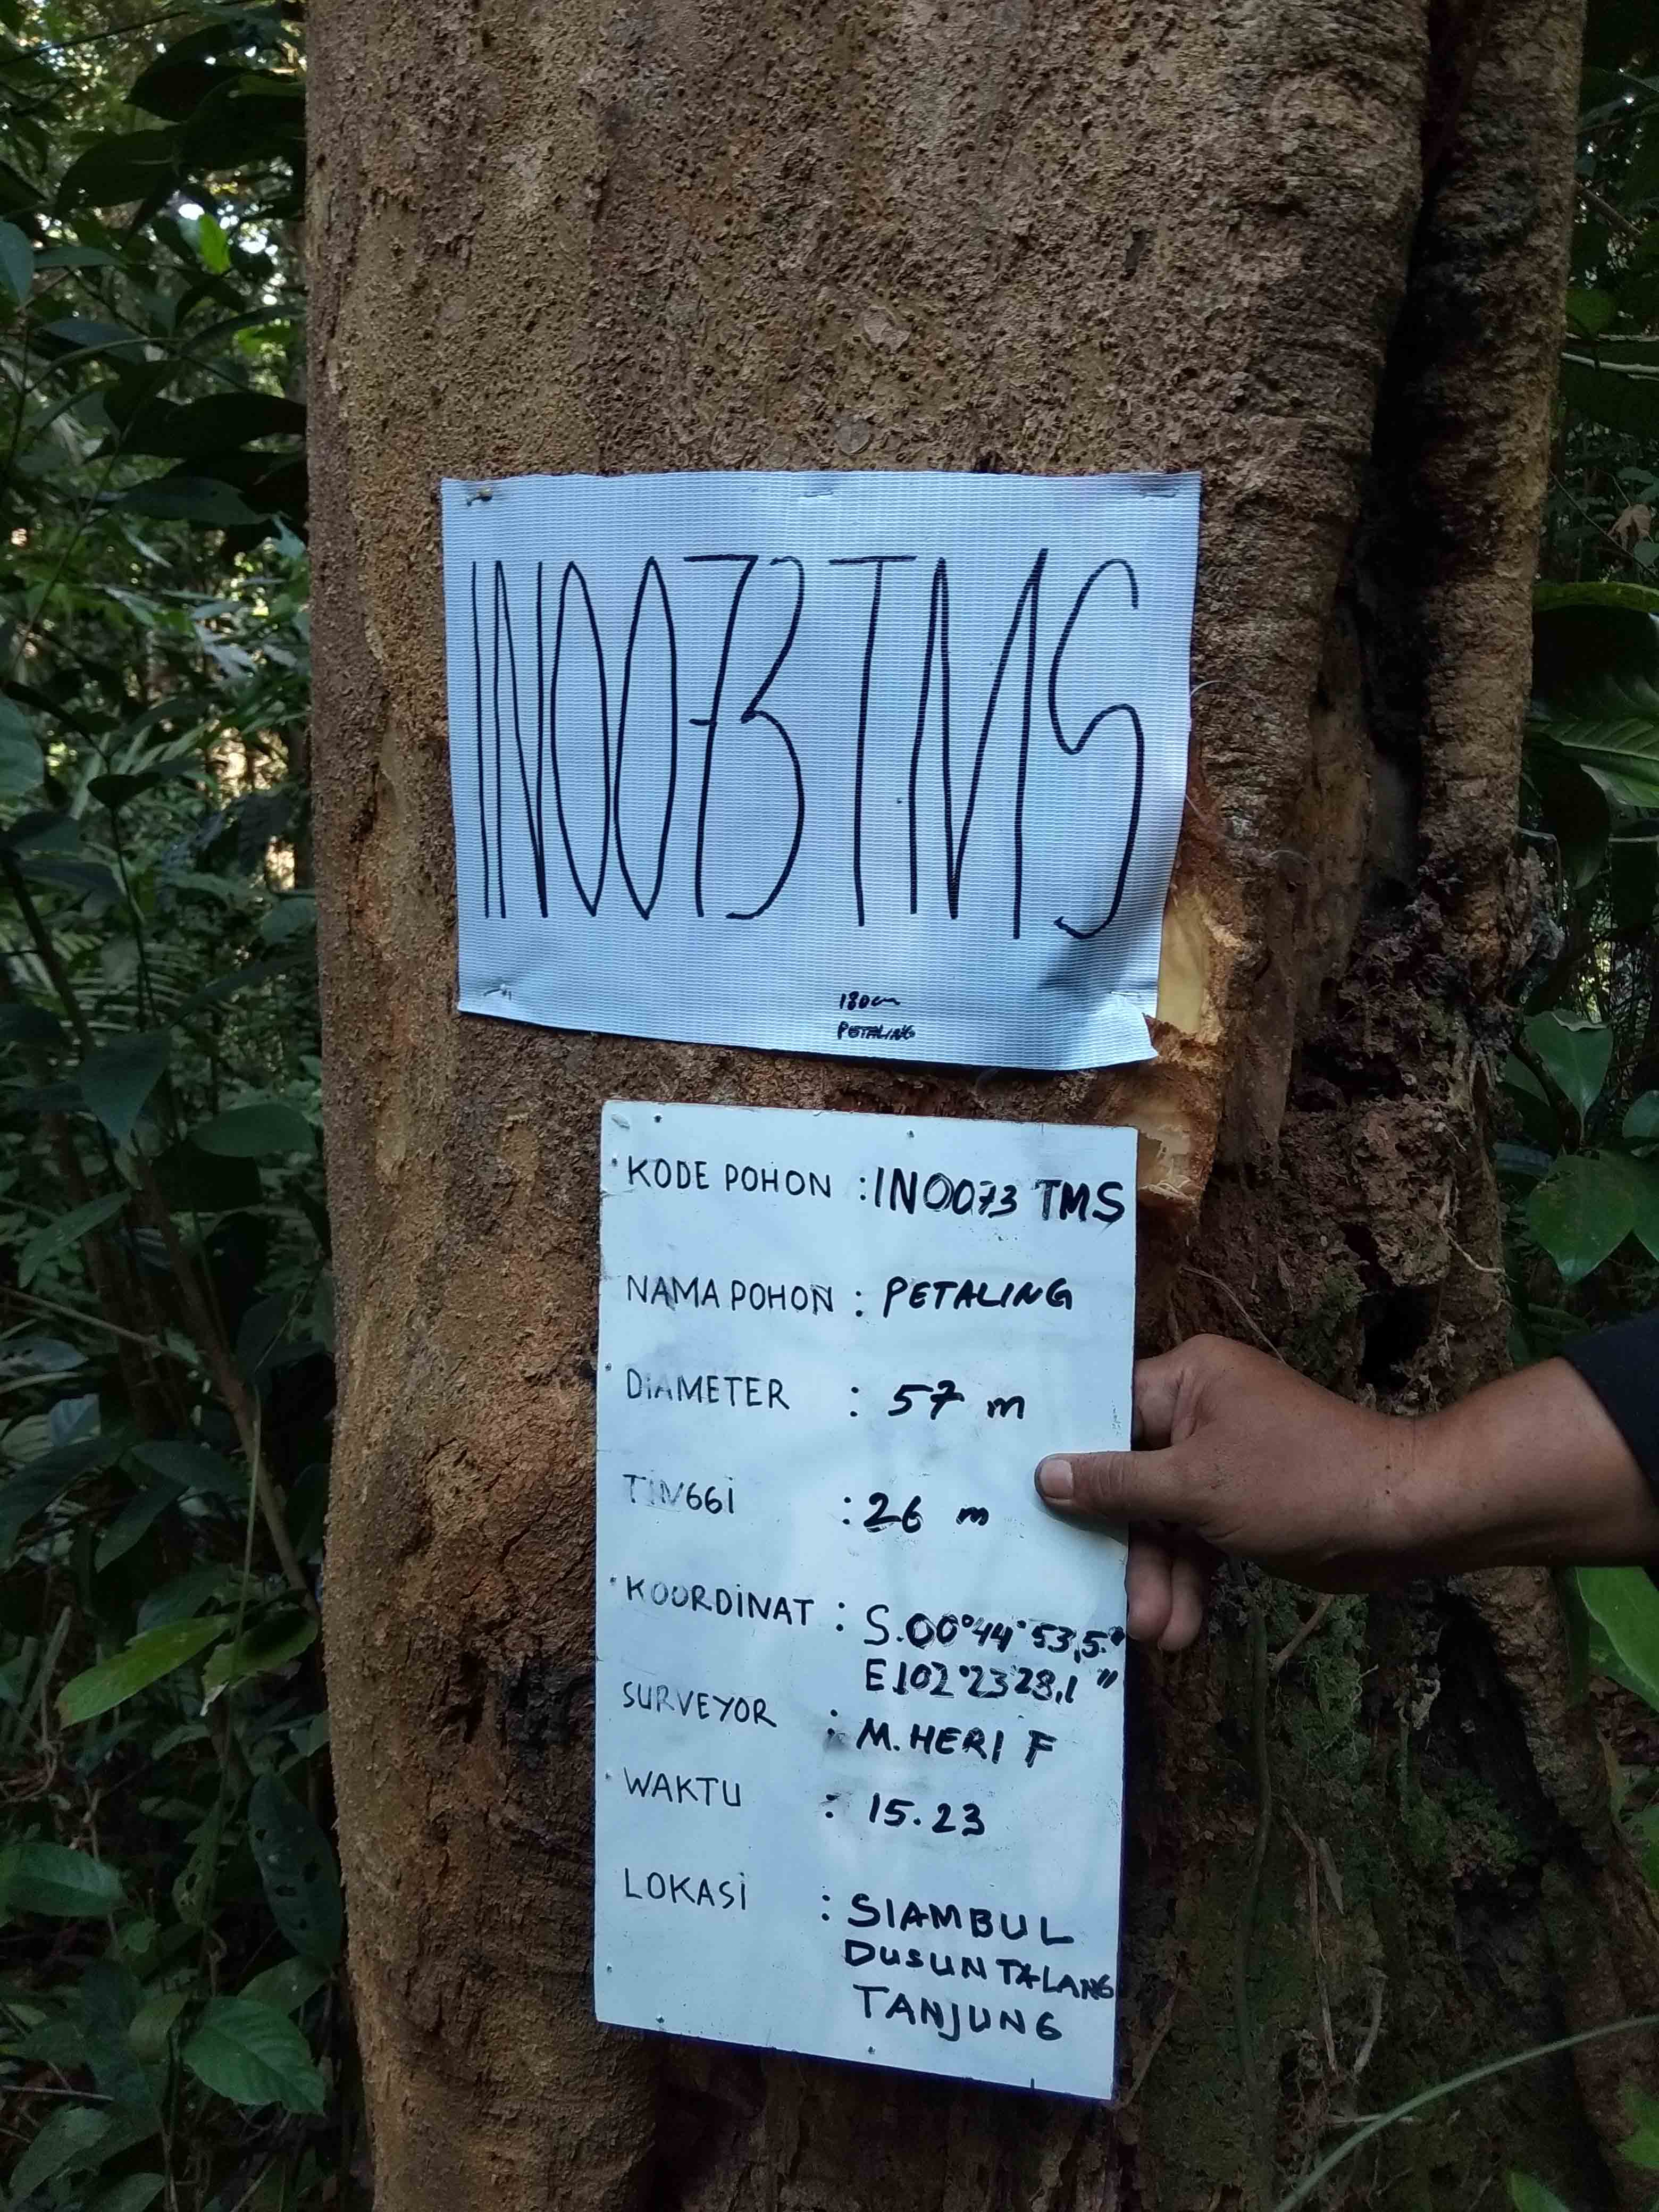 IN0073 TMS
180cm
PETALING
KODE POHON : IN0073 TMS
NAMA POHON : PETALING
DIAMETER : 57 m
TINGGI : 26 m
KOORDINAT : S.00°44'53,5"
E102°2328,1"
SURVEYOR : M.HERI F
WAKTU : 15.23
LOKASI : SIAMBUL
DUSUN TALANG
TANJUNG